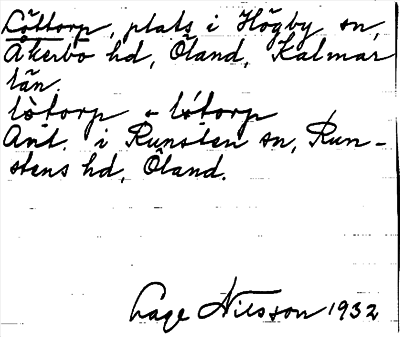 Löttorp, plats i Högby sn,
Åkerbo hd, Öland, Kalmar
län.
lò̀torp - ló́torp
Ant. i Runsten sn, Run-
stens hd, Öland.
Lage Nilsson 1932